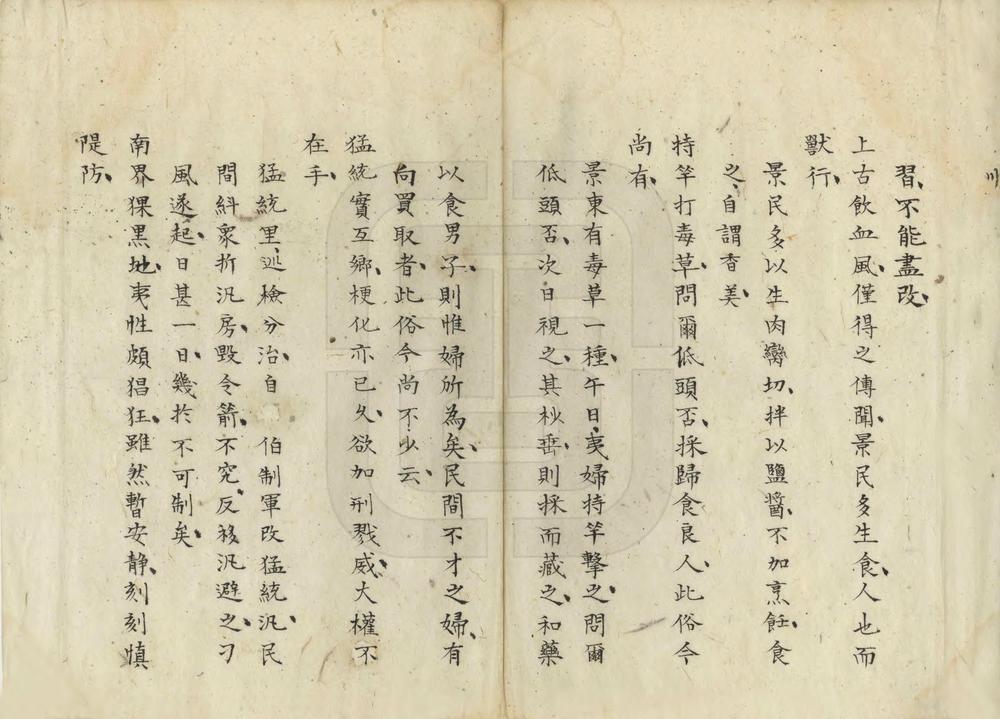 習、不能盡改、
上古飲血風、僅得之傳聞、景民多生食、人也而
獸行、
景民多以生肉臠切、拌以鹽醬、不加烹飪、食
之、自謂香美、
持竿打毒草、問爾低頭否、採歸食良人、此俗今
尚有、
景東有毒草一種、午日、夷婦持竿擊之、問爾
低頭否、次日視之、其杪垂、則採而藏之、和藥
以食男子、則惟婦所為矣、民間不才之婦、有
向買取者、此俗今尚不少云、
猛統實互鄉、梗化亦已久、欲加刑戮威、大權不
在手、
猛統里、巡檢分治、自 伯制軍改猛統、汛、民
間糾衆折汛房、毀令箭、不究、反移汛避之、刁
風遂起、日甚一日、幾於不可制矣、
南界猓黑地、夷性頗猖狂、雖然暫安静、刻刻慎
隄防、